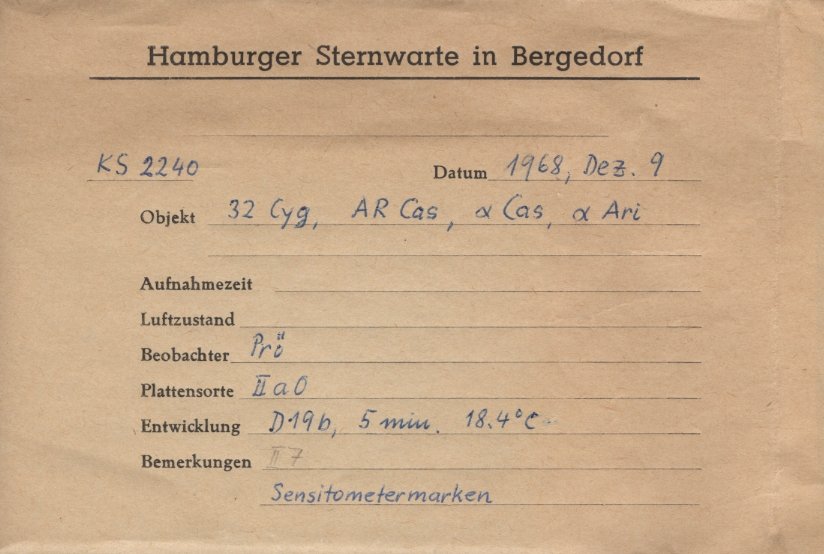 Hamburger Sternwarte in Bergedorf
KS 2240 Datum 1968, Dez. 9
Objekt 32 Cyg, AR Cas, α Cas, α Ari
Aufnahmezeit
Luftzustand
Beobachter Prö
Plattensorte IIaO
Entwicklung D19b, 5 min. 18.4°C
Bemerkungen II 7
Sensitometermarken